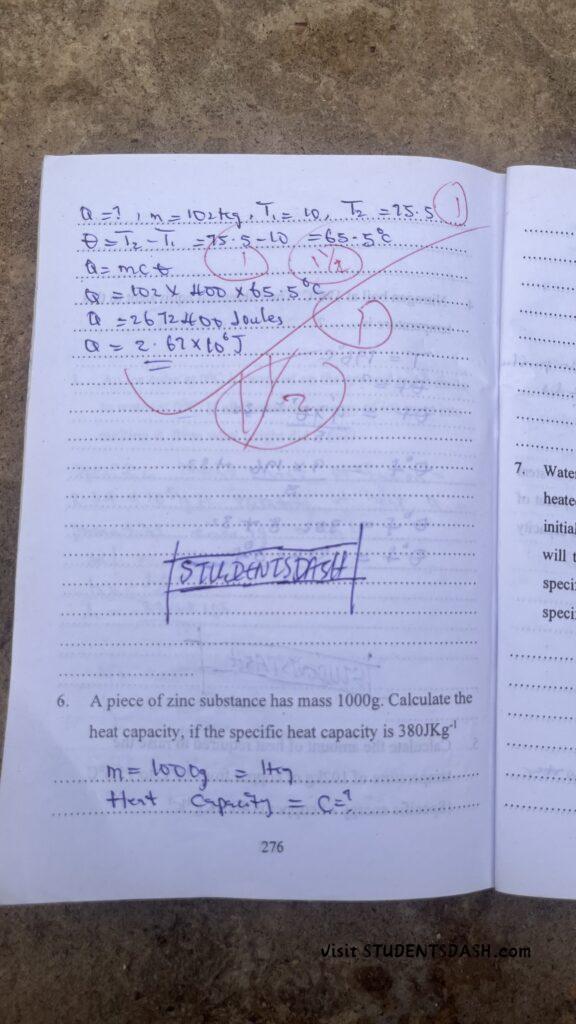 Q = ?, m = 102kg, T₁ = 10, T₂ = 75.5 1
θ = T₂ - T₁ = 75.5 - 10 = 65.5°C
1 1½
Q = mcθ
Q = 102 × 400 × 65.5°C
Q = 2672400 Joules
1
Q = 2.67 × 10⁶ J
STUDENTSDASH
6. A piece of zinc substance has mass 1000g. Calculate the
heat capacity, if the specific heat capacity is 380JKg⁻¹
m = 1000g = 1kg
Heat Capacity = C = ?
276
7. Wate
heate
initial
will t
specif
specif
Visit STUDENTSDASH.com